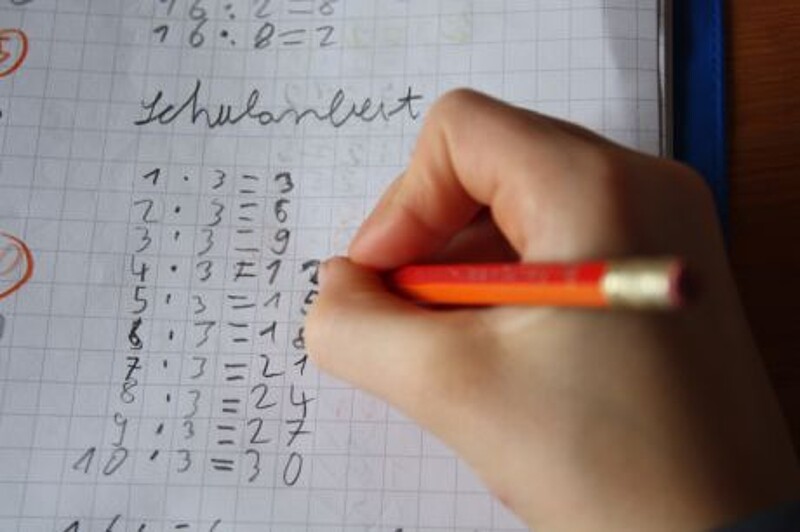 16:2=8
16:8=2
Schulanbeit
1·3=3
2·3=6
3·3=9
4·3=12
5·3=15
6·3=18
7·3=21
8·3=24
9·3=27
10·3=30